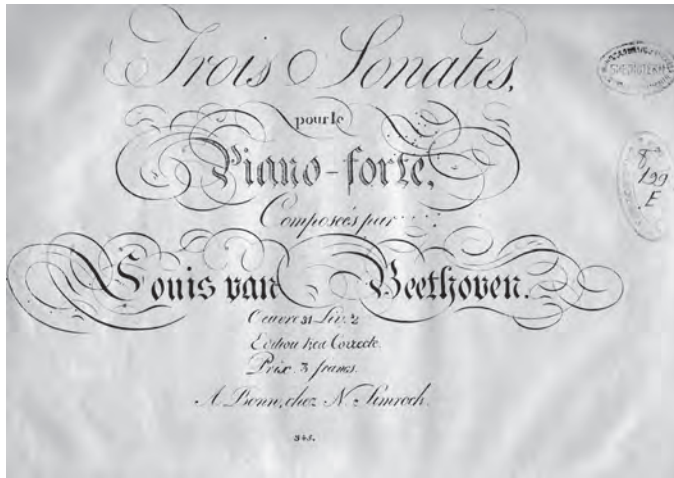 Trois Sonates,
pour le
Piano-forte,
Composées par
Louis van Beethoven.
Oeuvre 31 Liv. 2
Edition très Correcte.
Prix 3 francs.
A Bonn, chez N. Simrock.
345.
8
199
E